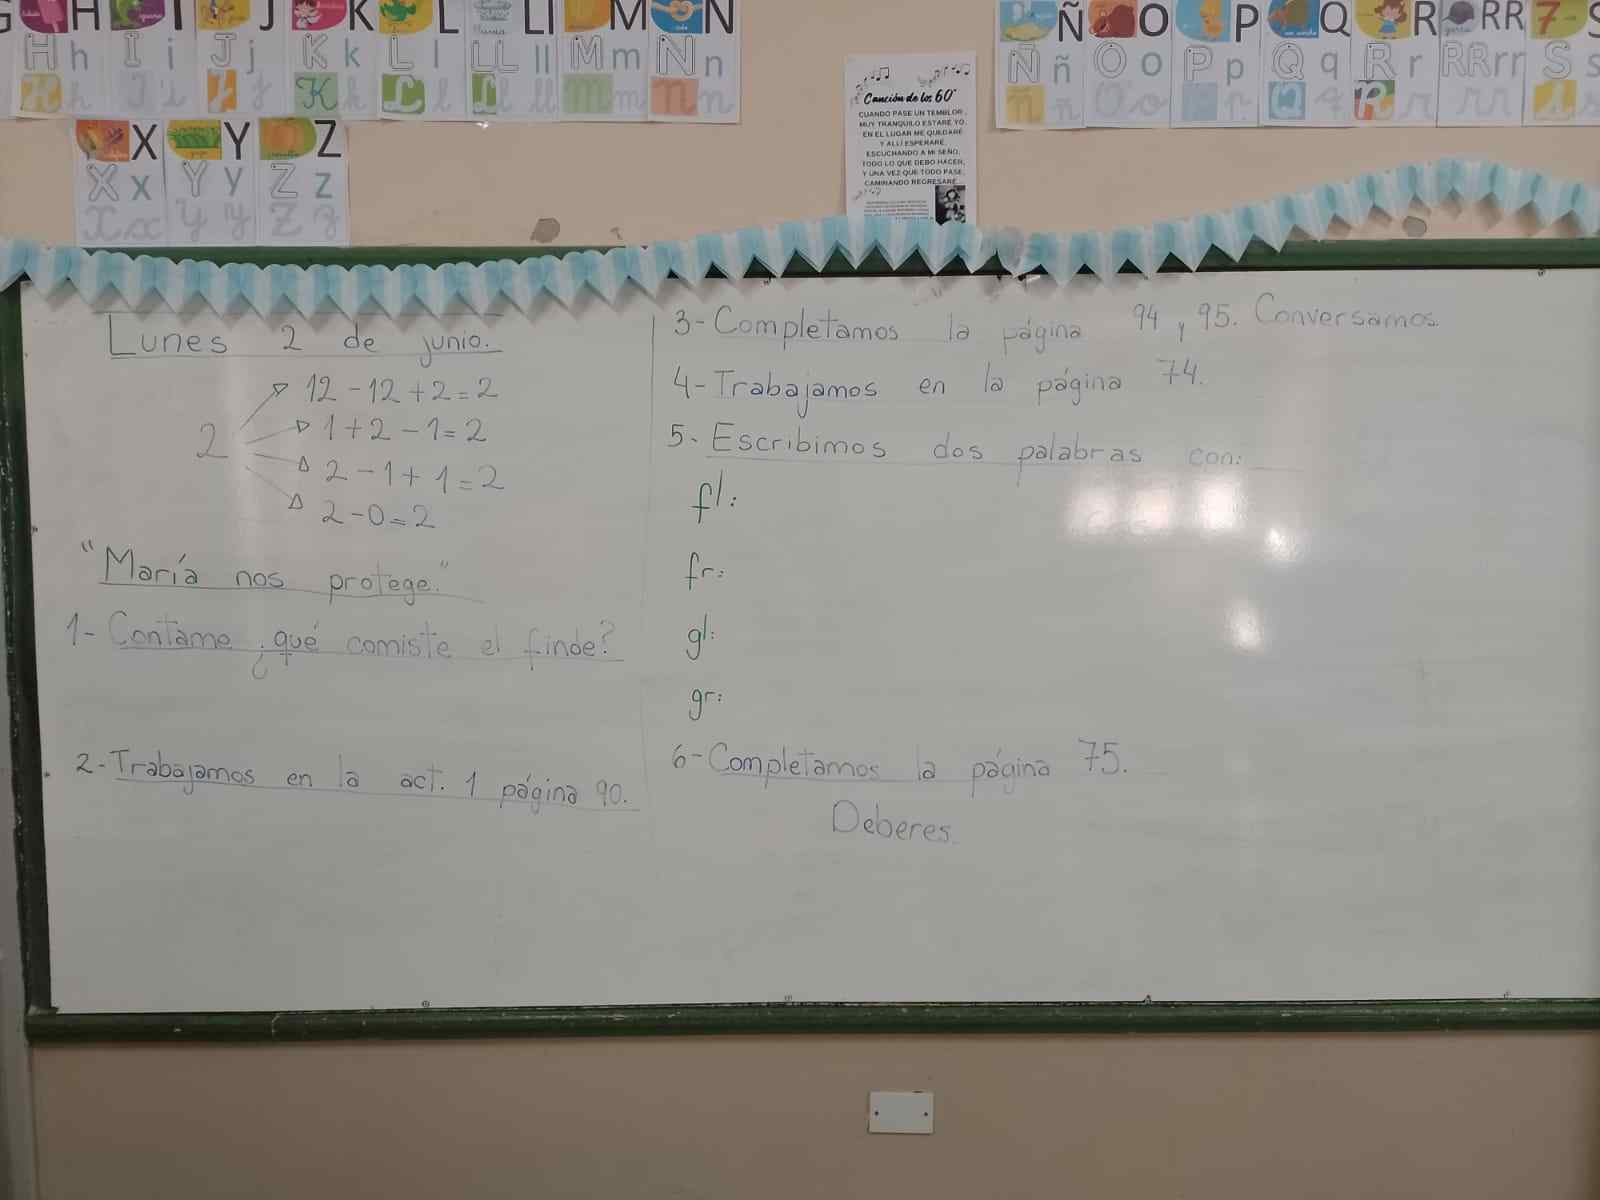 H I J K L Ll M N
H h I i J j K k L l LL ll M m N n
H h I i J j K k L l Ll ll M m N n
Ñ O P Q R RR S
Ñ ñ O o P p Q q R r RR rr S s
Ñ ñ O o P p Q q R r RR rr S s
X Y Z
X x Y y Z z
X x Y y Z z
Canción de los 60"
CUANDO PASE UN TEMBLOR,
MUY TRANQUILO ESTARÉ YO.
EN EL LUGAR ME QUEDARÉ
Y ALLÍ ESPERARÉ.
ESCUCHANDO A MI SEÑO,
TODO LO QUE DEBO HACER,
Y UNA VEZ QUE TODO PASE,
CAMINANDO REGRESARÉ
Lunes 2 de junio.
2
12 - 12 + 2 = 2
1 + 2 - 1 = 2
2 - 1 + 1 = 2
2 - 0 = 2
"María nos protege."
1- Contame ¿qué comiste el finde?
2- Trabajamos en la act. 1 página 90.
3- Completamos la página 94 y 95. Conversamos.
4- Trabajamos en la página 74.
5. Escribimos dos palabras con:
fl:
fr:
gl:
gr:
6- Completamos la página 75.
Deberes.